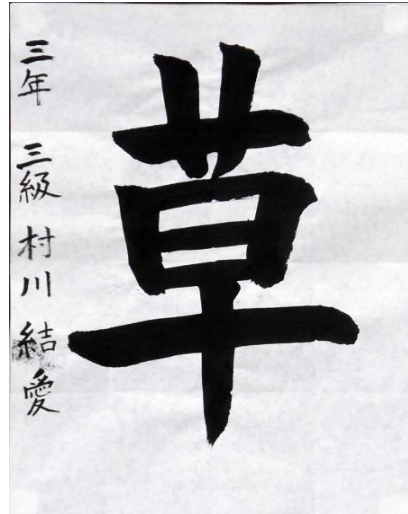 草
三年 三級 村川 結愛